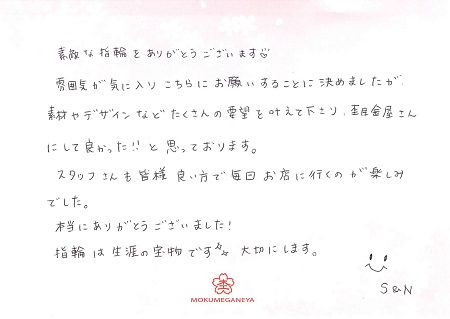 素敵な指輪をありがとうございます☺
雰囲気が気に入りこちらにお願いすることに決めましたが、
素材やデザインなどたくさんの要望を叶えて下さり、杢目金屋さん
にして良かった!!と思っております。
スタッフさんも皆様良い方で毎回お店に行くのが楽しみ
でした。
本当にありがとうございました!
指輪は生涯の宝物です 大切にします。
S&N
MOKUMEGANEYA